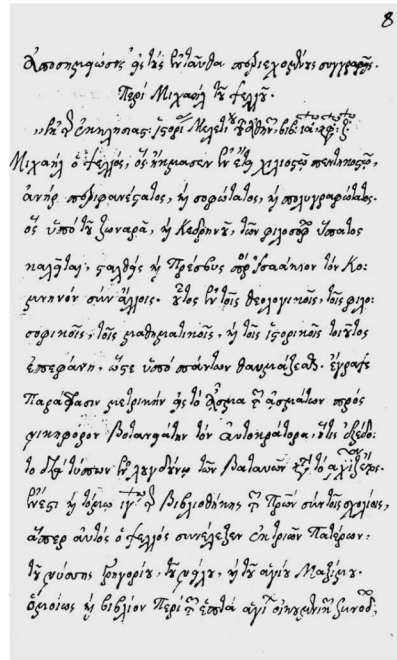 8
Ἀποσημειώσεις εἰς τοὺς ἐνταῦθα περιεχομένους συγγραφεῖς.
Περὶ Μιχαὴλ τοῦ Ψελλοῦ.
„ἐκ τῆς ἐκκλησιας: ἱστορί: Μελετίου Ἀθην: βιβ: ια. κεφ: ζ
Μιχαὴλ ὁ Ψελλός, ὃς ἤκμασεν ἐν ἔτει χιλιοστῷ πεντηκοστῷ,
ἀνὴρ περιφανέστατος, καὶ σοφώτατος, καὶ πολυγραφώτατος.
ὃς ὑπὸ τοῦ Ζωναρᾶ, καὶ Κεδρηνοῦ, τῶν φιλοσόφων ὕπατος
καλεῖται, σταλθεὶς καὶ Πρέσβυς πρὸς Ἰσαάκιον τὸν Κο:
μνηνὸν σὺν ἄλλοις. οὗτος ἐν τοῖς θεολογικοῖς, τοῖς φιλο:
σοφικοῖς, τοῖς μαθηματικοῖς, καὶ τοῖς ἱστορικοῖς τοιοῦτος
ἐπεφάνη, ὥστε ὑπὸ πάντων θαυμάζεσθαι. ἔγραψε
Παράφρασιν μετρικὴν εἰς τὸ ᾆσμα τῶν ᾀσμάτων πρὸς
νικηφόρον Βοτανιάτην τὸν Αὐτοκράτορα, ἥτις ἐξεδό:
το διὰ τύπων ἐν λουγδούνῳ τῶν Βατανῶν κατὰ τὸ αχιζ ἔτος.
ἔνεστι καὶ τόμῳ ιγ τῆς Βιβλιοθήκης τῶν Πρῶν σὺν τοῖς σχολίοις,
ἅπερ αὐτὸς ὁ ψελλὸς συνέλεξεν ἐκ τριῶν Πατέρων,
τοῦ νύσσης Γρηγορίου, τοῦ νείλου, καὶ τοῦ ἁγίου Μαξίμου.
ὁμοίως καὶ βιβλίον Περὶ τῶν ἑπτὰ ἁγίων οἰκουμενικῶν Συνόδ: